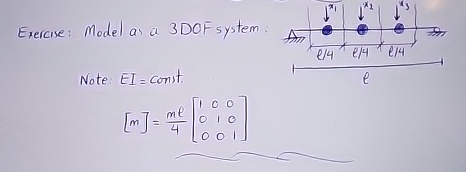 Exercise: Model as a 3DOF system:
x₁ x₂ x₃
ℓ/4 ℓ/4 ℓ/4
ℓ
Note: EI = const.
[m] = mℓ/4 [1 0 0
0 1 0
0 0 1]